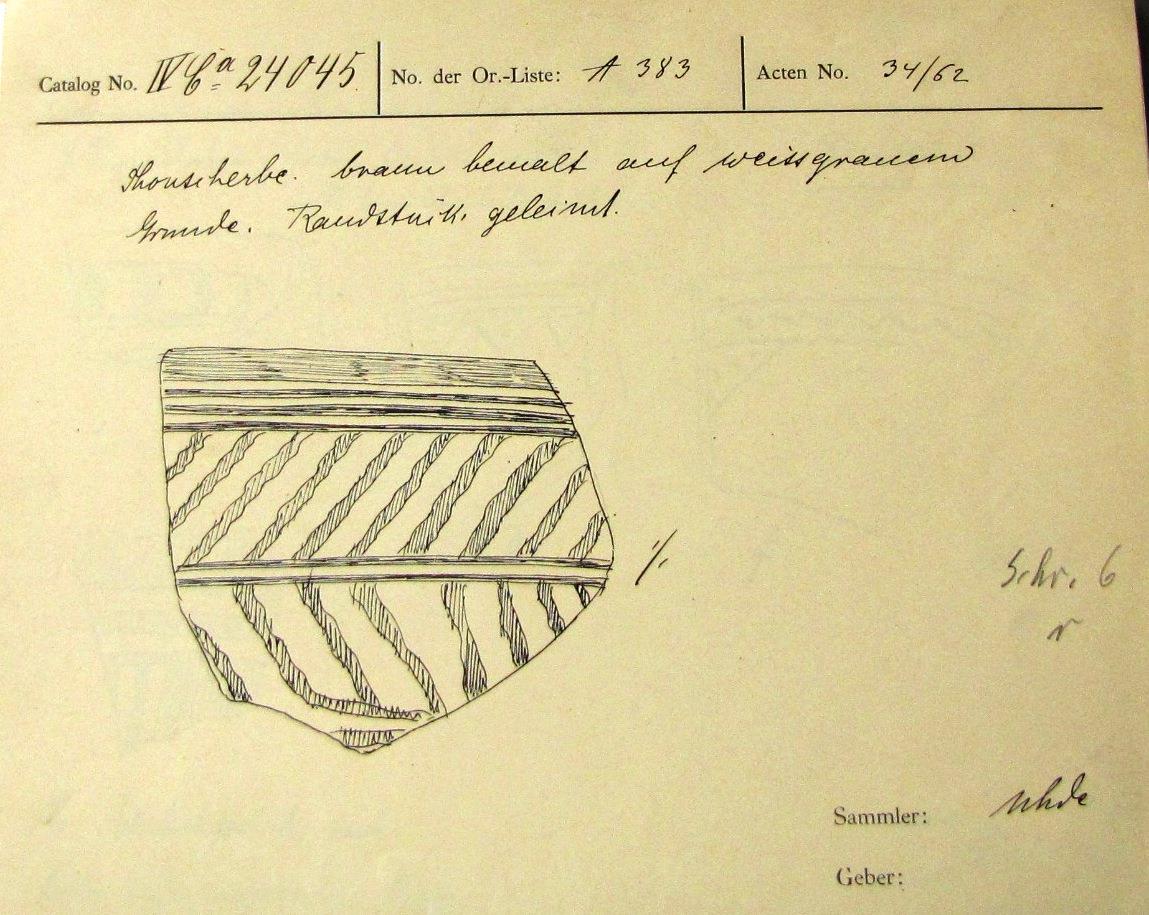 Catalog No. IV Ca 24045 No. der Or.-Liste: A 383 Acten No. 34/62
Thonscherbe. braun bemalt auf weissgrauem
Grunde. Randstück. geleimt.
1/1
Schr. 6
r
Sammler: Uhde
Geber: